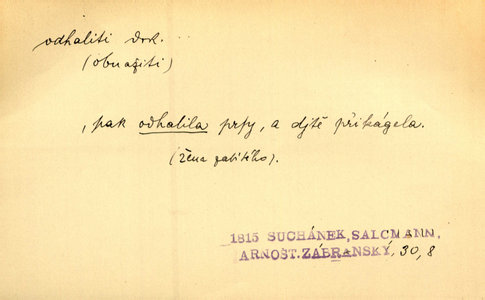 odhaliti dok.
(obnažiti)
, pak odhalila prsy, a djtě přikágela.
(žena zabitého).
1815 SUCHÁNEK, SALCMANN,
ARNOŠT. ZÁBRANSKÝ, 30, 8